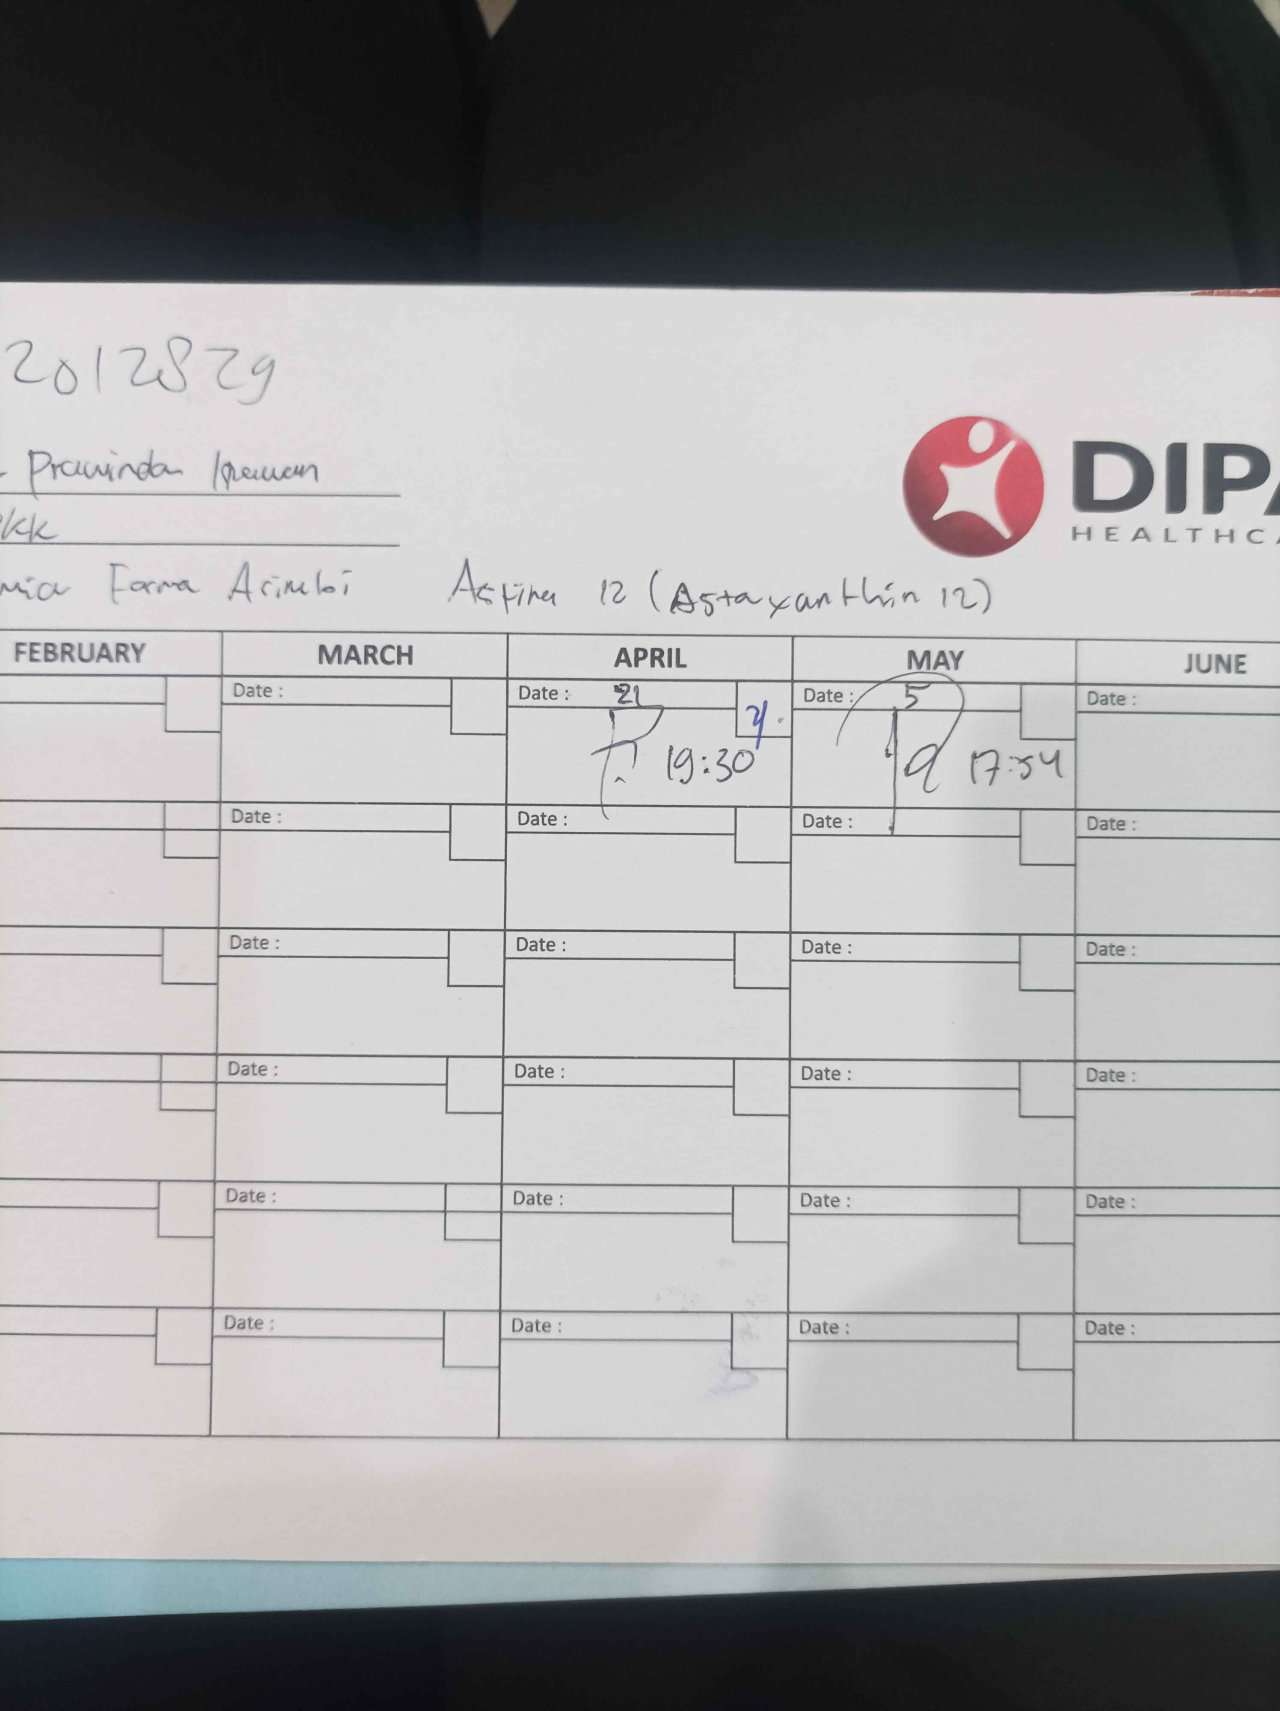 2012829
Prawindan
DIPA
HEALTHCA
kk
Farma Arimbi Astina 12 (Astaxanthin 12)
FEBRUARY MARCH APRIL MAY JUNE
Date : Date : 21 Date : 5 Date :
19:30 17:54
Date : Date : Date : Date :
Date : Date : Date : Date :
Date : Date : Date : Date :
Date : Date : Date : Date :
Date : Date : Date : Date :